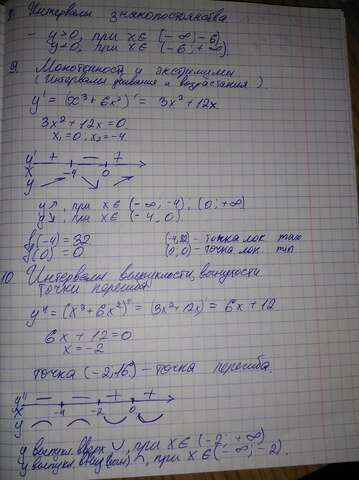 8. Интервалы знакопостоянства
- y>0, при x∈ (-∞; -6)
y<0, при x∈ (-6; +∞)
9. Монотонность и экстремумы
(Интервалы убывания и возрастания)
y' = (x³+6x²)' = 3x²+12x
3x²+12x=0
x₁=0; x₂=-4
y' + - +
x -4 0
y
y↗, при x∈ (-∞; -4), (0; +∞)
y↘, при x∈ (-4; 0)
f(-4) = 32 (-4;32) - точка лок. max
f(0) = 0 (0; 0) - точка лок. min
10 Интервалы выпуклости, вогнутости
точки перегиба
y'' = (x³+6x²)'' = (3x²+12x)' = 6x+12
6x+12=0
x=-2
точка (-2;16) - точка перегиба.
y'' - - + +
x -4 -2 0
y
y выпукл. вверх ∪, при x∈ (-2; +∞)
y выпукл. вниз ∩, при x∈ (-∞; -2).